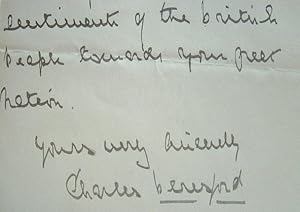 sentiments of the British
people towards your great
nation.
Yours very sincerely
Charles Beresford